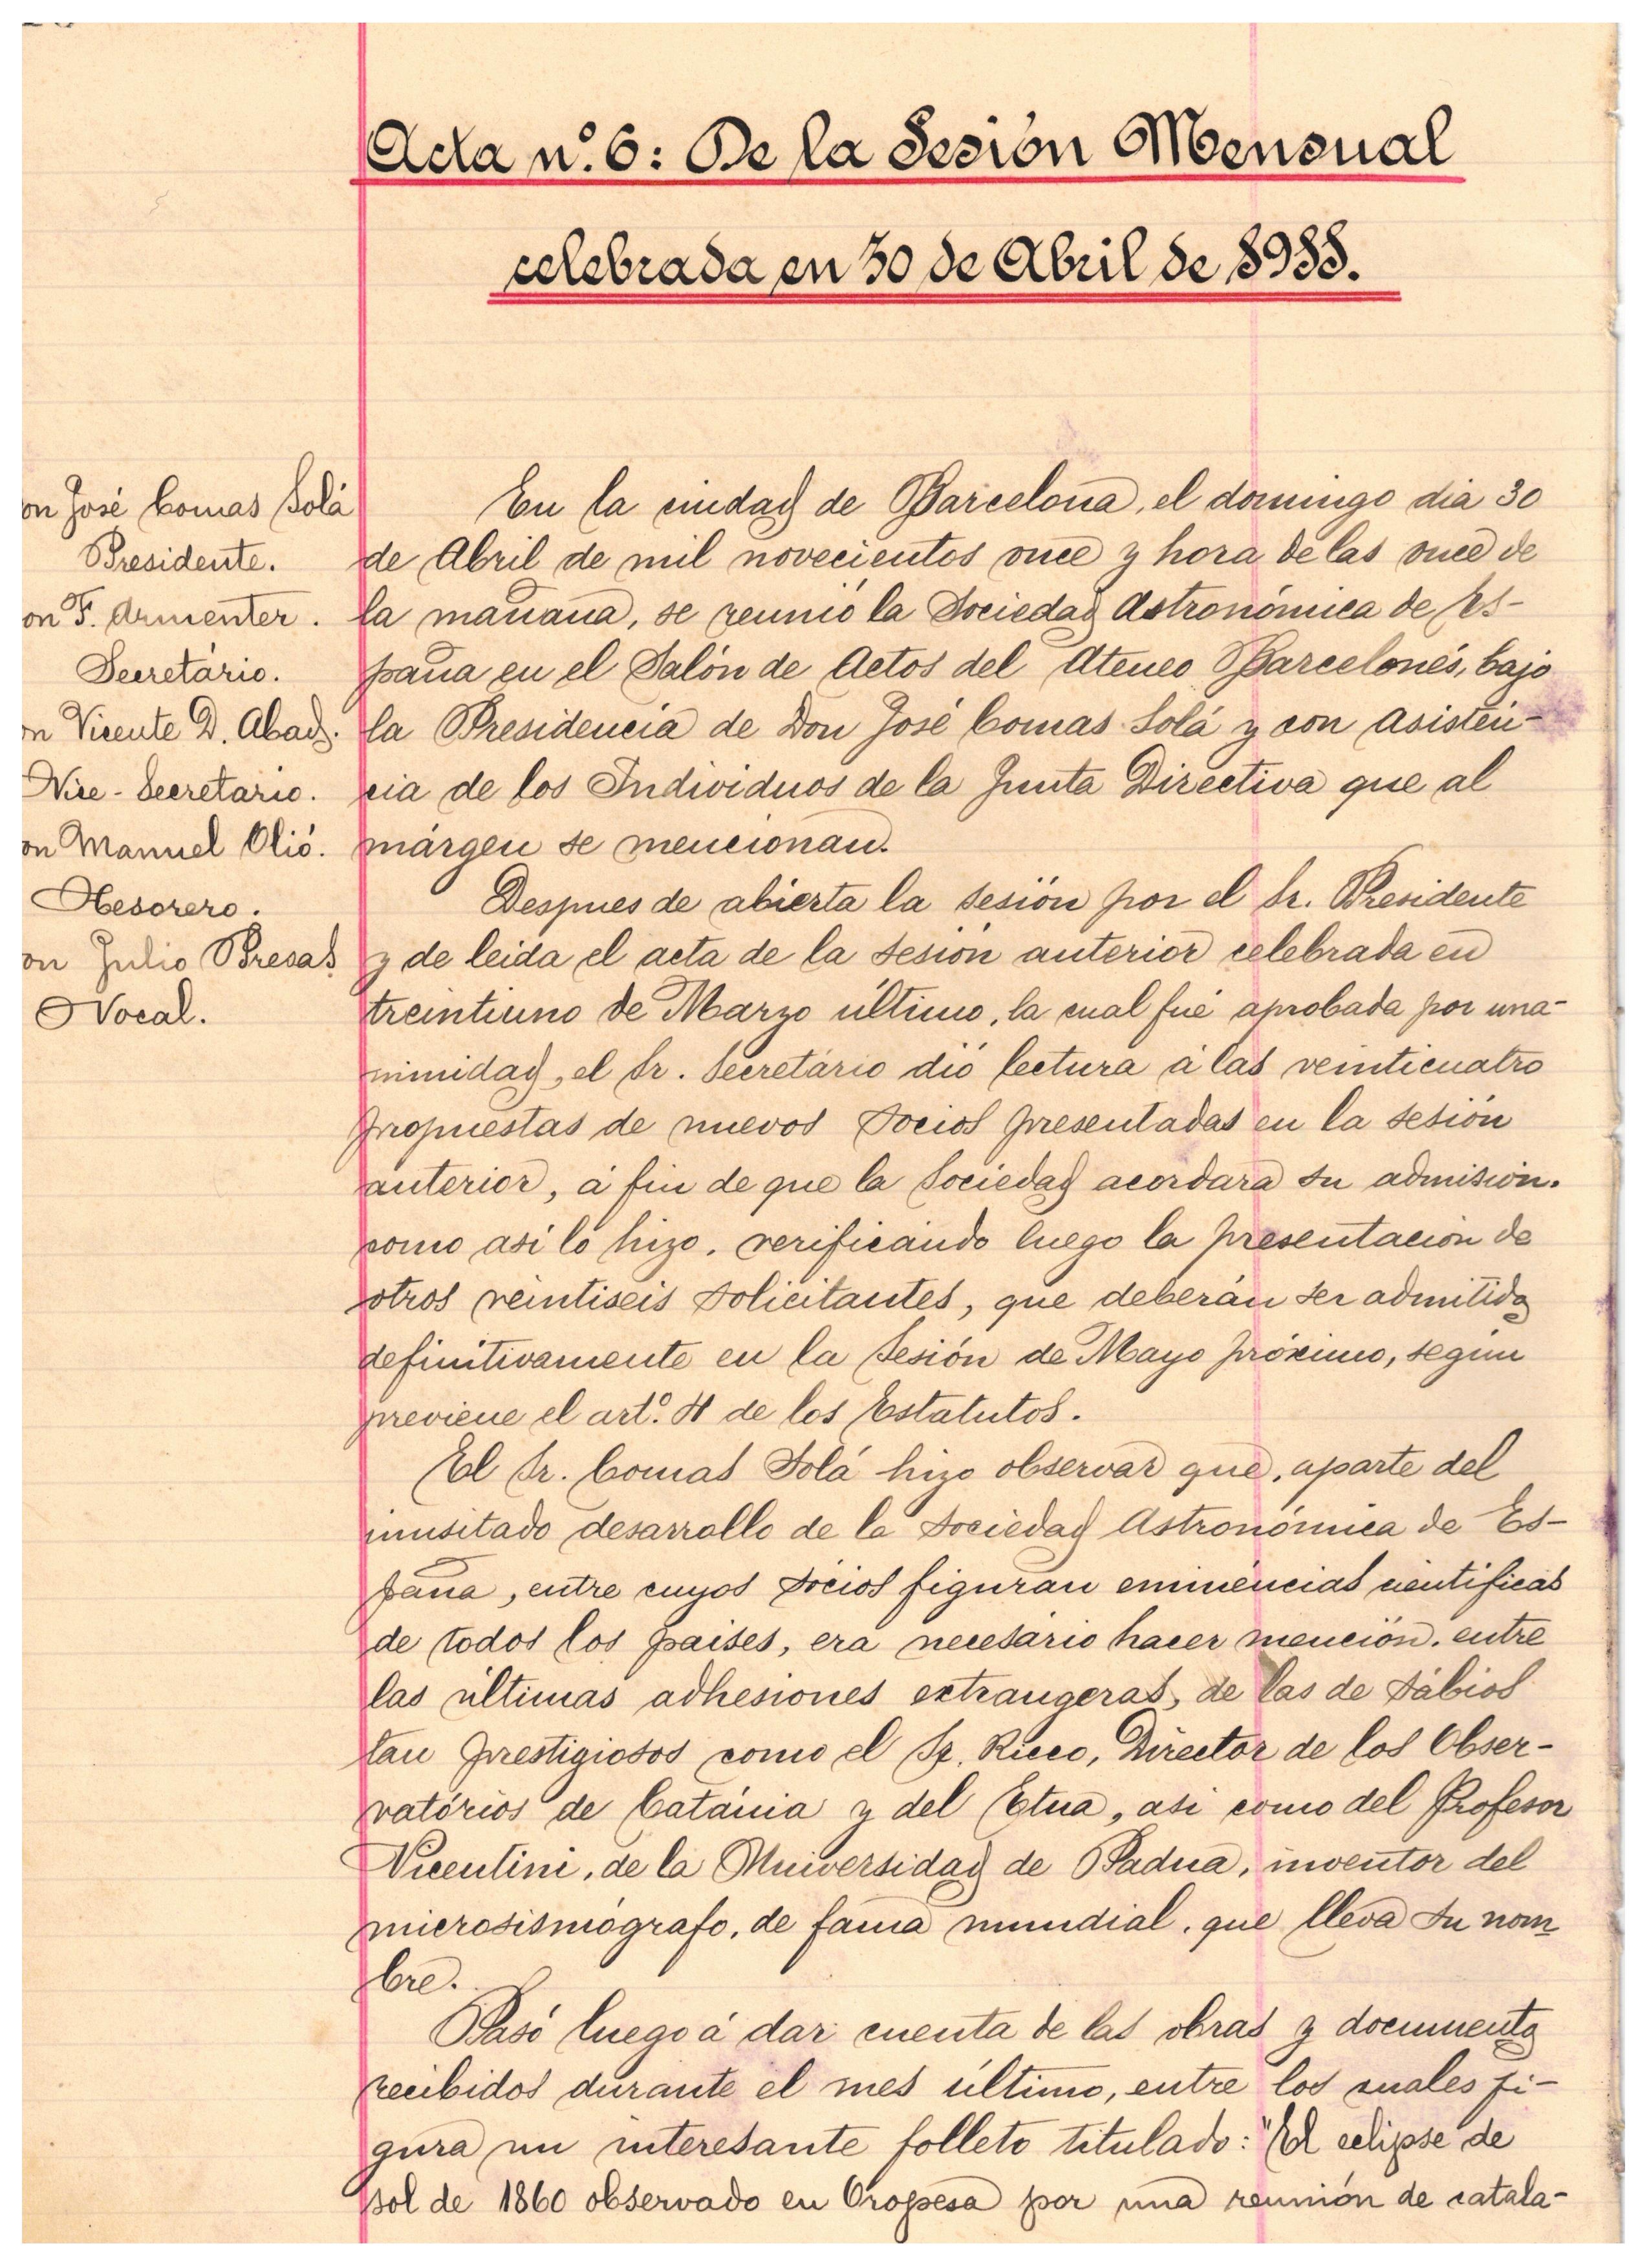 Acta n.º 6: De la Sesión Mensual
celebrada en 30 de Abril de 1911.
on José Comas Solá
Presidente.
on F. Armenter.
Secretário.
on Vicente D. Abad.
Vice-Secretario.
on Manuel Olió.
Tesorero.
on Julio Bresas
Vocal.
En la ciudad de Barcelona, el domingo dia 30
de Abril de mil novecientos once y hora de las once de
la mañana, se reunió la Sociedad Astronómica de Es-
paña en el Salón de Actos del Ateneo Barcelonés, bajo
la Presidencia de Don José Comas Solá y con asisten-
cia de los Individuos de la Junta Directiva que al
márgen se mencionan.
Despues de abierta la sesión por el Sr. Presidente
y de leida el acta de la sesión anterior celebrada en
treintiuno de Marzo último, la cual fué aprobada por una-
nimidad, el Sr. Secretário dió lectura á las veinticuatro
propuestas de nuevos Socios presentadas en la sesión
anterior, á fin de que la Sociedad acordara su admisión.
como asi lo hizo, verificando luego la presentación de
otros veintiseis solicitantes, que deberán ser admitidos
definitivamente en la Sesión de Mayo próximo, según
previene el artº. 4 de los Estatutos.
El Sr. Comas Solá hizo observar que, aparte del
inusitado desarrollo de la Sociedad Astronómica de Es-
paña, entre cuyos sócios figuran eminencias cientificas
de todos los paises, era necesário hacer mención, entre
las últimas adhesiones extrangeras, de las de sábios
tan prestigiosos como el Sr. Ricco, Director de los Obser-
vatórios de Catánia y del Etna, asi como del Profesor
Vicentini, de la Universidad de Padua, inventor del
microsismógrafo, de fama mundial, que lleva su nom
bre.
Pasó luego á dar cuenta de las obras y documentos
recibidos durante el mes último, entre los cuales fi-
gura un interesante folleto titulado: "El eclipse de
sol de 1860 observado en Oropesa por una reunión de catala-